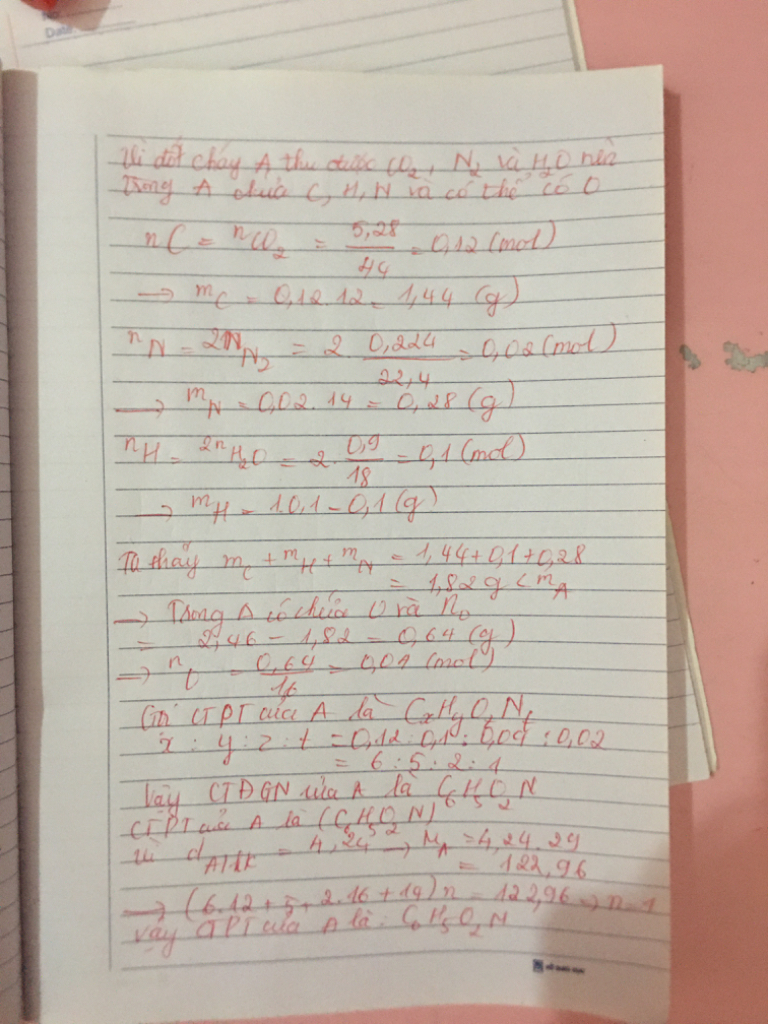 Date
Vì đốt cháy A thu được CO2, N2 và H2O nên
trong A chứa C, H, N và có thể có O
nC = nCO2 = 5,28/44 = 0,12 (mol)
→ mC = 0,12.12 = 1,44 (g)
nN = 2nN2 = 2. 0,224/22,4 = 0,02 (mol)
→ mN = 0,02.14 = 0,28 (g)
nH = 2nH2O = 2. 0,9/18 = 0,1 (mol)
→ mH = 1.0,1 = 0,1 (g)
Ta thấy mC + mH + mN = 1,44+0,1+0,28
= 1,82 g < mA
→ Trong A có chứa O và nO
= 2,46 - 1,82 = 0,64 (g)
→ nO = 0,64/16 = 0,04 (mol)
Gọi CTPT của A là CxHyOzNt
x : y : z : t = 0,12 : 0,1 : 0,04 : 0,02
= 6 : 5 : 2 : 1
Vậy CTĐGN của A là C6H5O2N
CTPT của A là (C6H5O2N)
Vì dA/kk = 4,24 → MA = 4,24.29
= 122,96
→ (6.12 + 5 + 2.16 + 14)n = 122,96 → n = 1
Vậy CTPT của A là: C6H5O2N